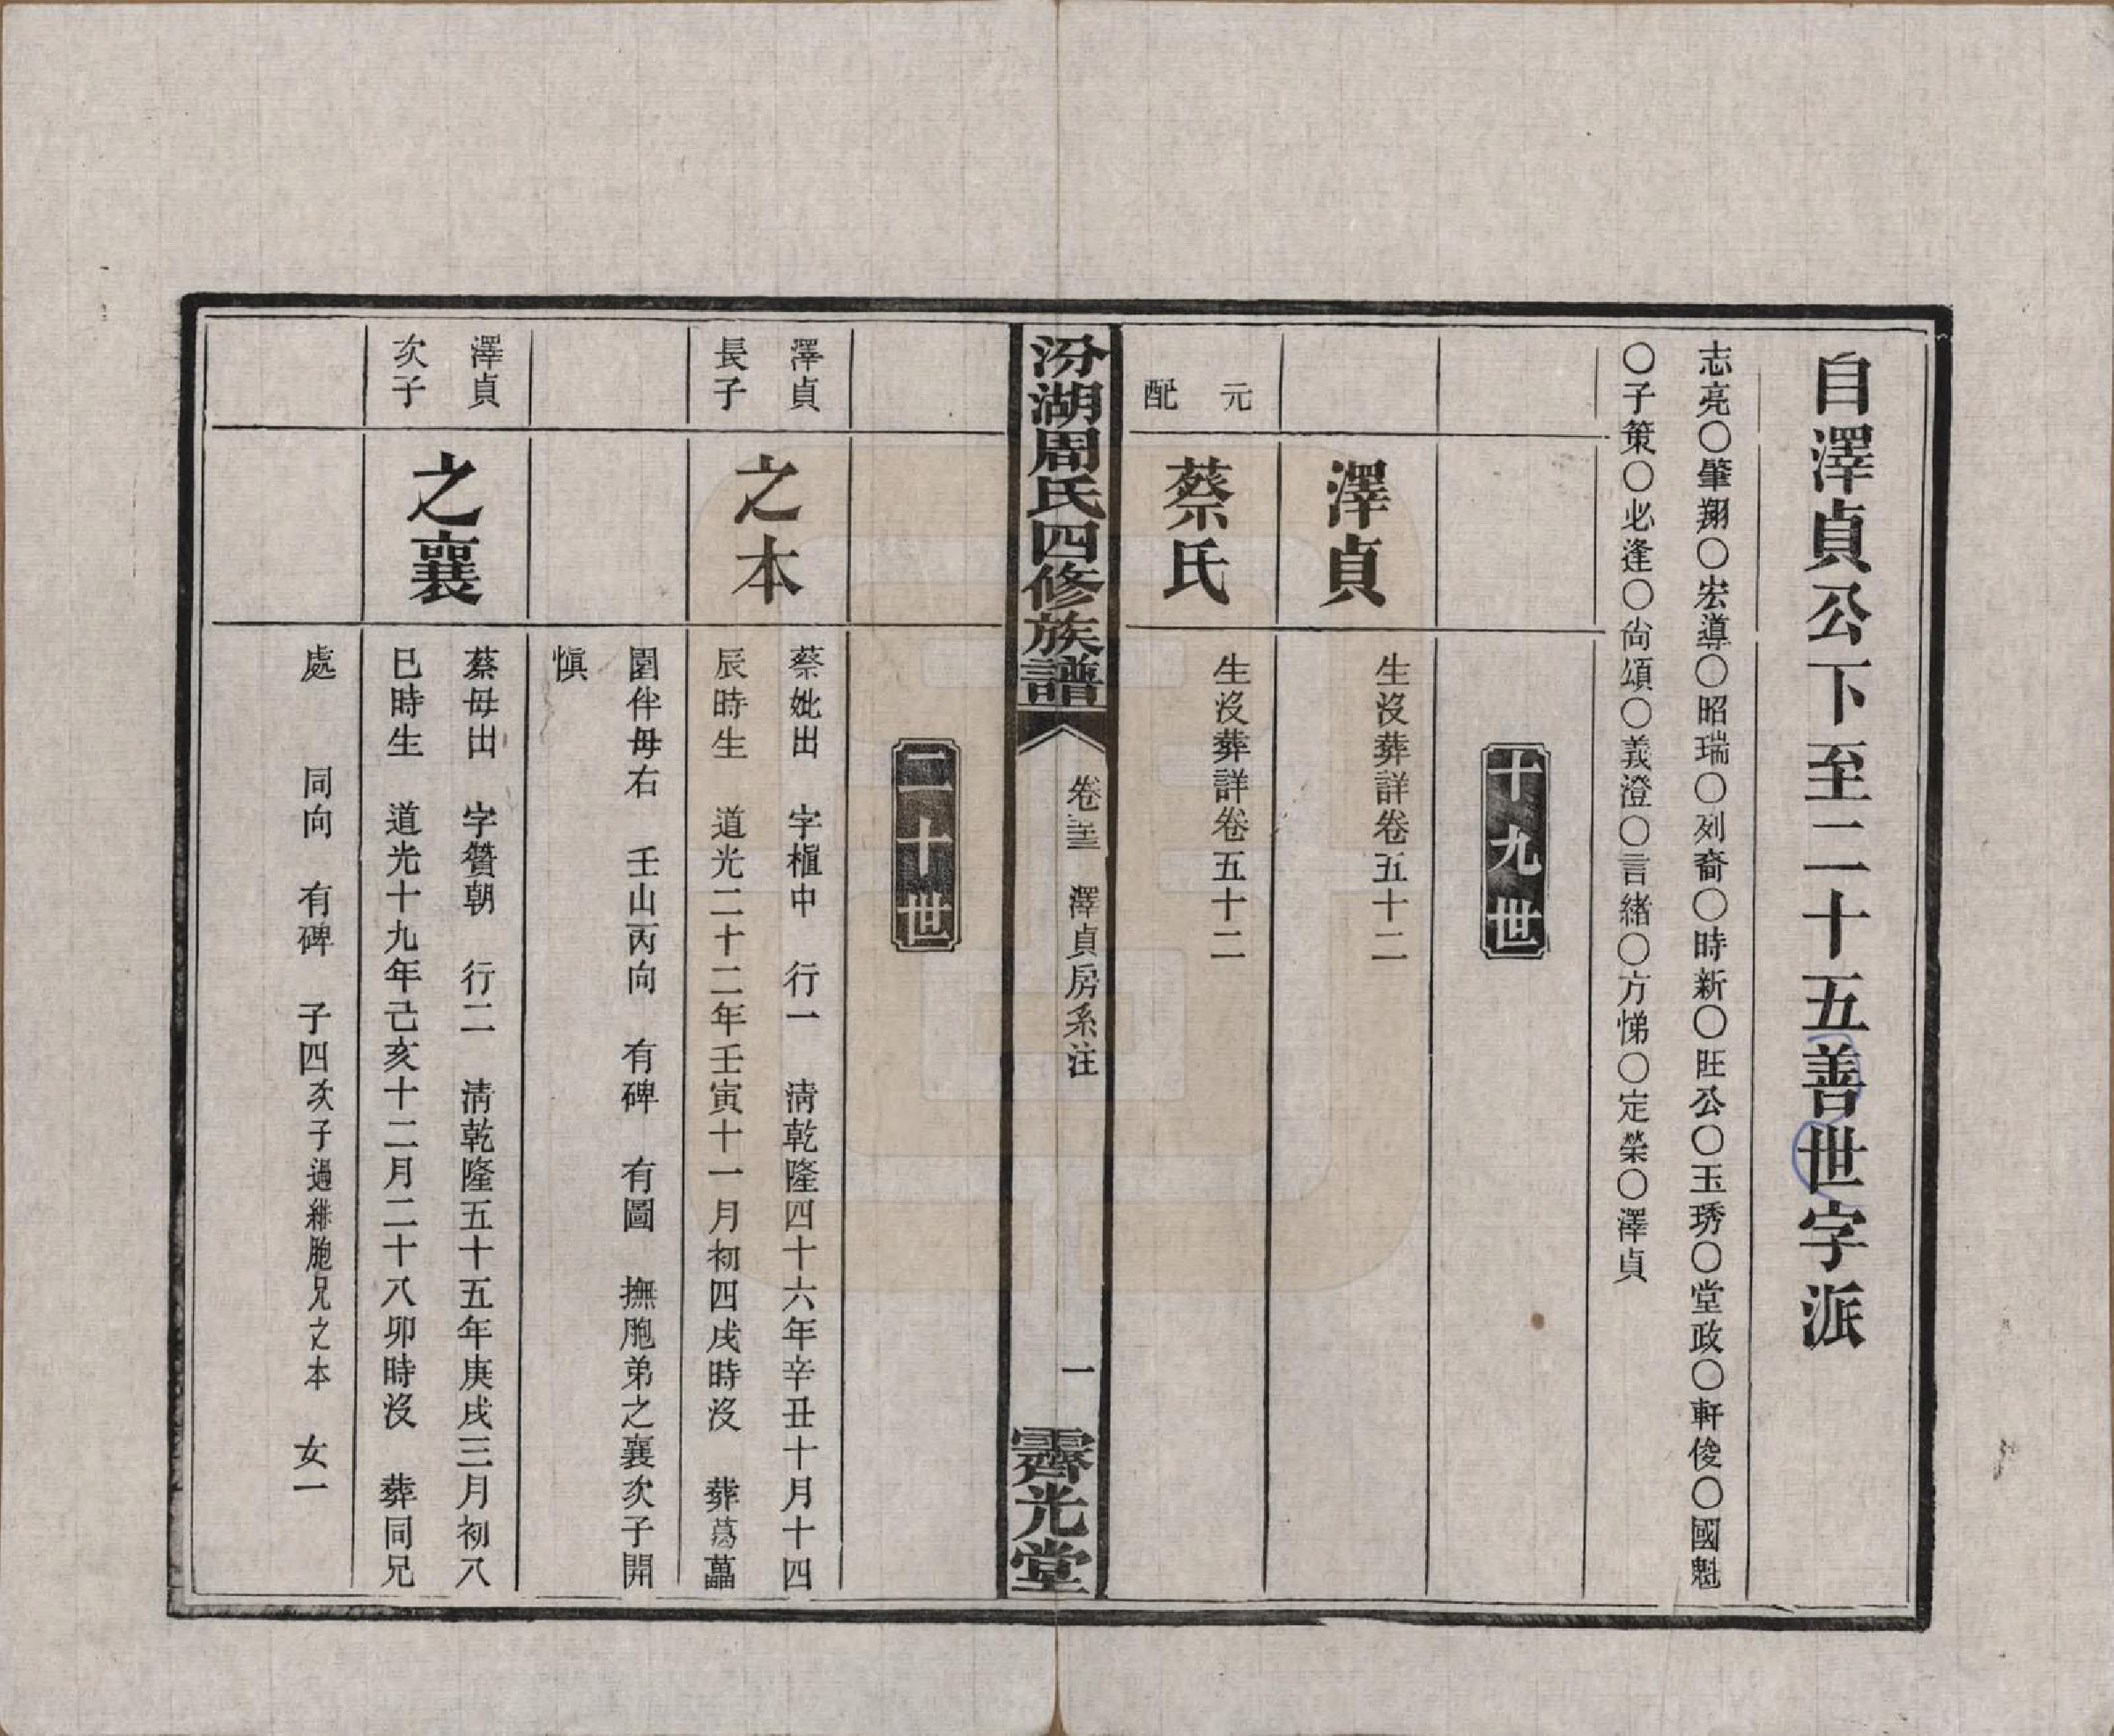 自澤貞公下至二十五善世字派
志亮〇肇翔〇宏導〇昭瑞〇列裔〇時新〇旺公〇玉琇〇堂政〇軒俊〇國魁
〇子策〇必逢〇尙頌〇義澄〇言緒〇方悌〇定榮〇澤貞
十九世
澤貞
生沒葬詳卷五十二
元配
蔡氏
生沒葬詳卷五十二
汾湖周氏四修族譜
卷 澤貞房系注
一
霽光堂
二十世
澤貞
長子
之本
蔡妣出 字植中 行一 淸乾隆四十六年辛丑十月十四
辰時生 道光二十二年壬寅十一月初四戌時沒 葬葛藟
園伴母右 壬山丙向 有碑 有圖 撫胞弟之襄次子開
愼
澤貞
次子
之襄
蔡母出 字贊朝 行二 淸乾隆五十五年庚戌三月初八
巳時生 道光十九年己亥十二月二十八卯時沒 葬同兄
處 同向 有碑 子四次子過繼胞兄之本 女一